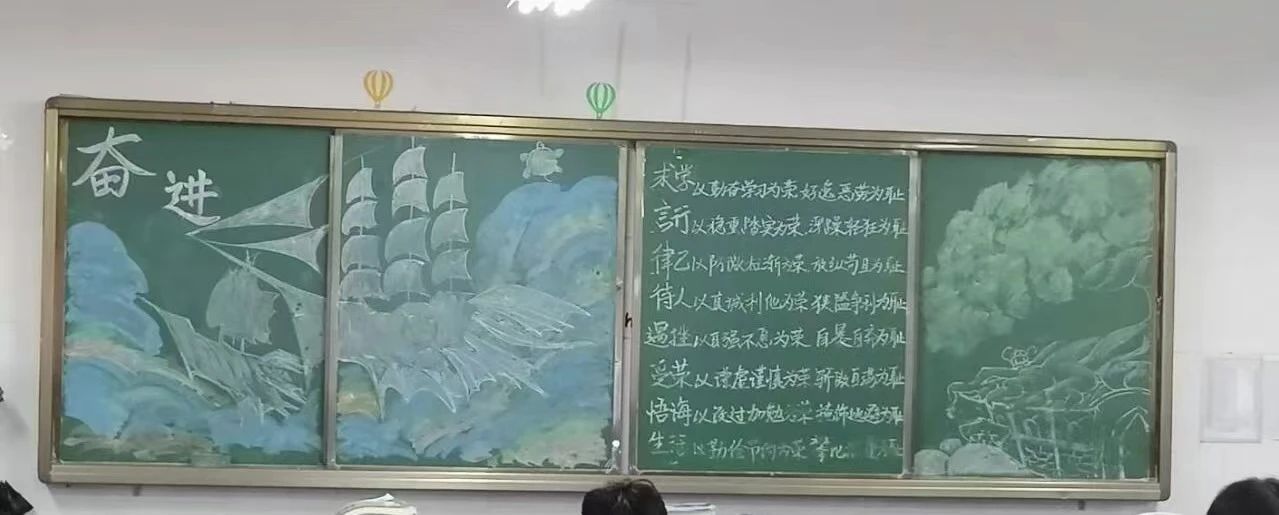 奋进
求学以勤奋学习为荣 好逸恶劳为耻
言行以稳重踏实为荣 浮躁轻狂为耻
律己以防微杜渐为荣 放纵苟且为耻
待人以真诚利他为荣 狭隘争利为耻
遇挫以自强不息为荣 自暴自弃为耻
受荣以谦虚谨慎为荣 骄傲自满为耻
悟海以改过加勉为荣 为耻
生活以勤俭节约为荣 奢化为耻